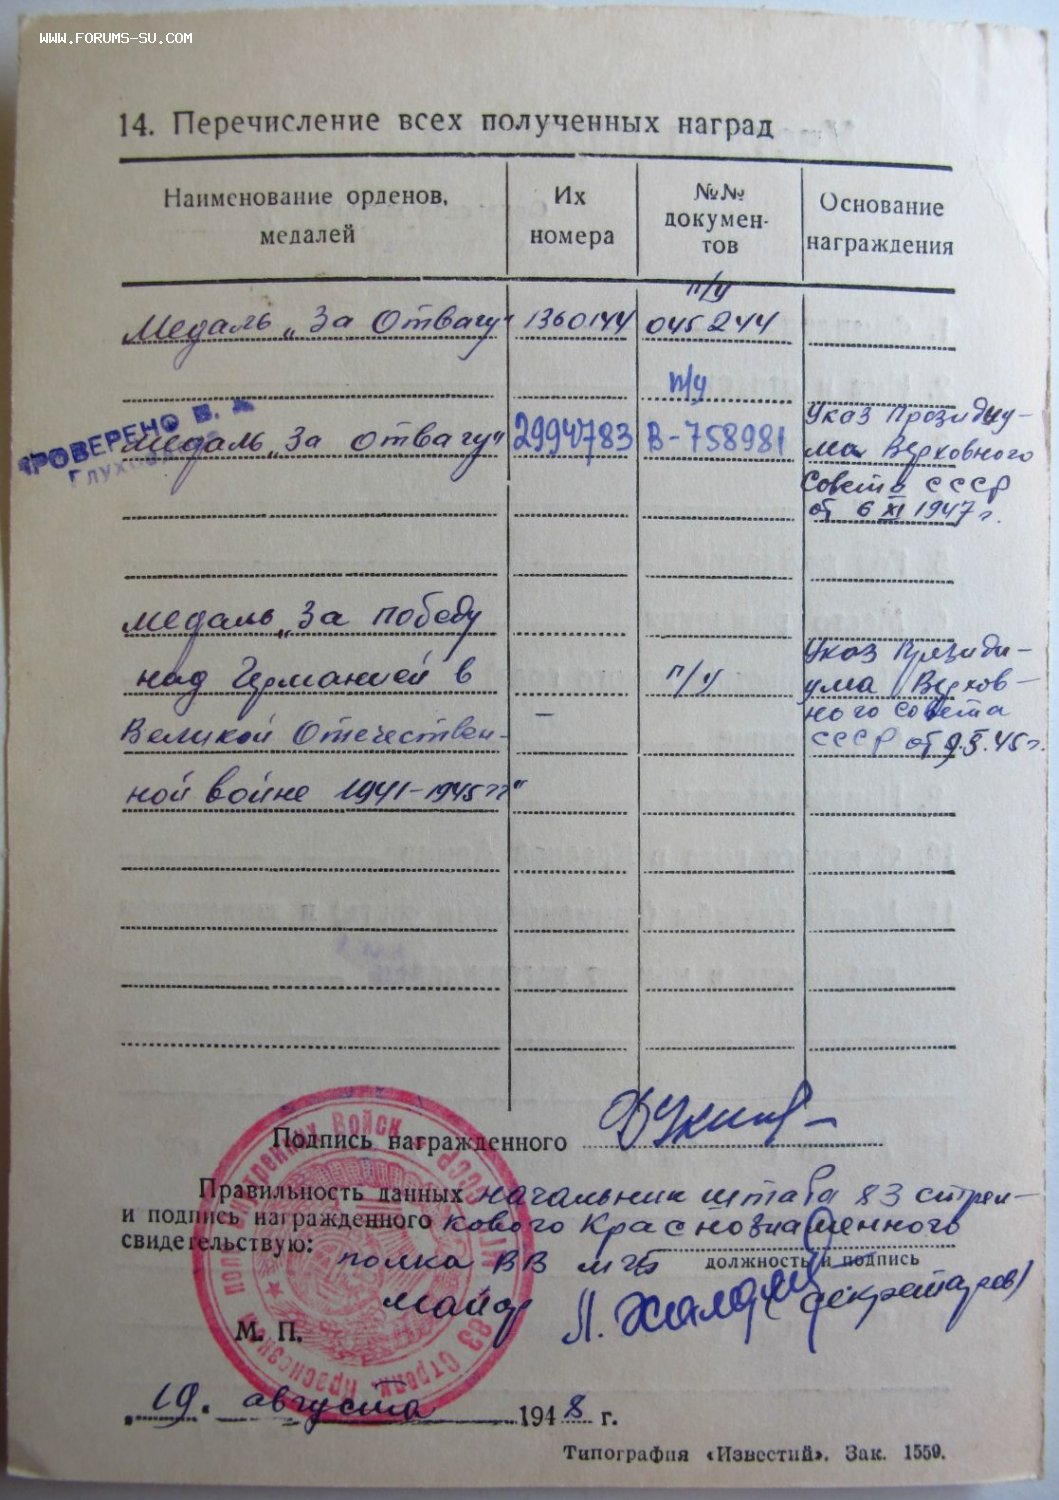 WWW.FORUMS-SU.COM
14. Перечисление всех полученных наград
Наименование орденов, медалей
Их номера
№№ документов
Основание награждения
п/у
Медаль „За Отвагу“ 1360144 045244
п/у
ПРОВЕРЕНО В.
медаль „За отвагу“ 2994783 В-758981
Указ Президиу-
ма Верховного
Совета СССР
от 6 XI 1947 г.
медаль „За победу
над Германией в
Великой Отечествен-
ной войне 1941-1945 гг“
—
п/у
Указ Президи-
ума Верхов-
ного Совета
СССР от 9.5.45 г.
Подпись награжденного
Правильность данных начальник штаба 83 стрел-
и подпись награжденного кового Краснознаменного
свидетельствую: полка ВВ МГБ
должность и подпись
майор
М. П.
„19.“ августа 1948 г.
Типография «Известий». Зак. 1559.